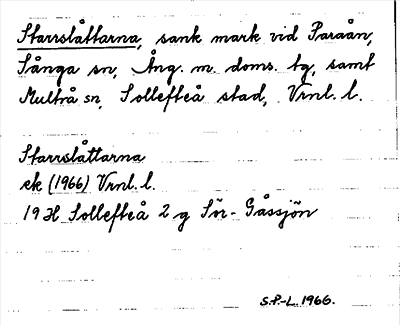 Starrslåttarna, sank mark vid Paraån,
Sånga sn, Ång. m. doms. tg, samt
Multrå sn, Sollefteå stad, Vrnl. l.
Starrslåttarna
ek (1966) Vrnl. l.
19 H Sollefteå 2 g Sör-Gåssjön
S.P.-L. 1966.